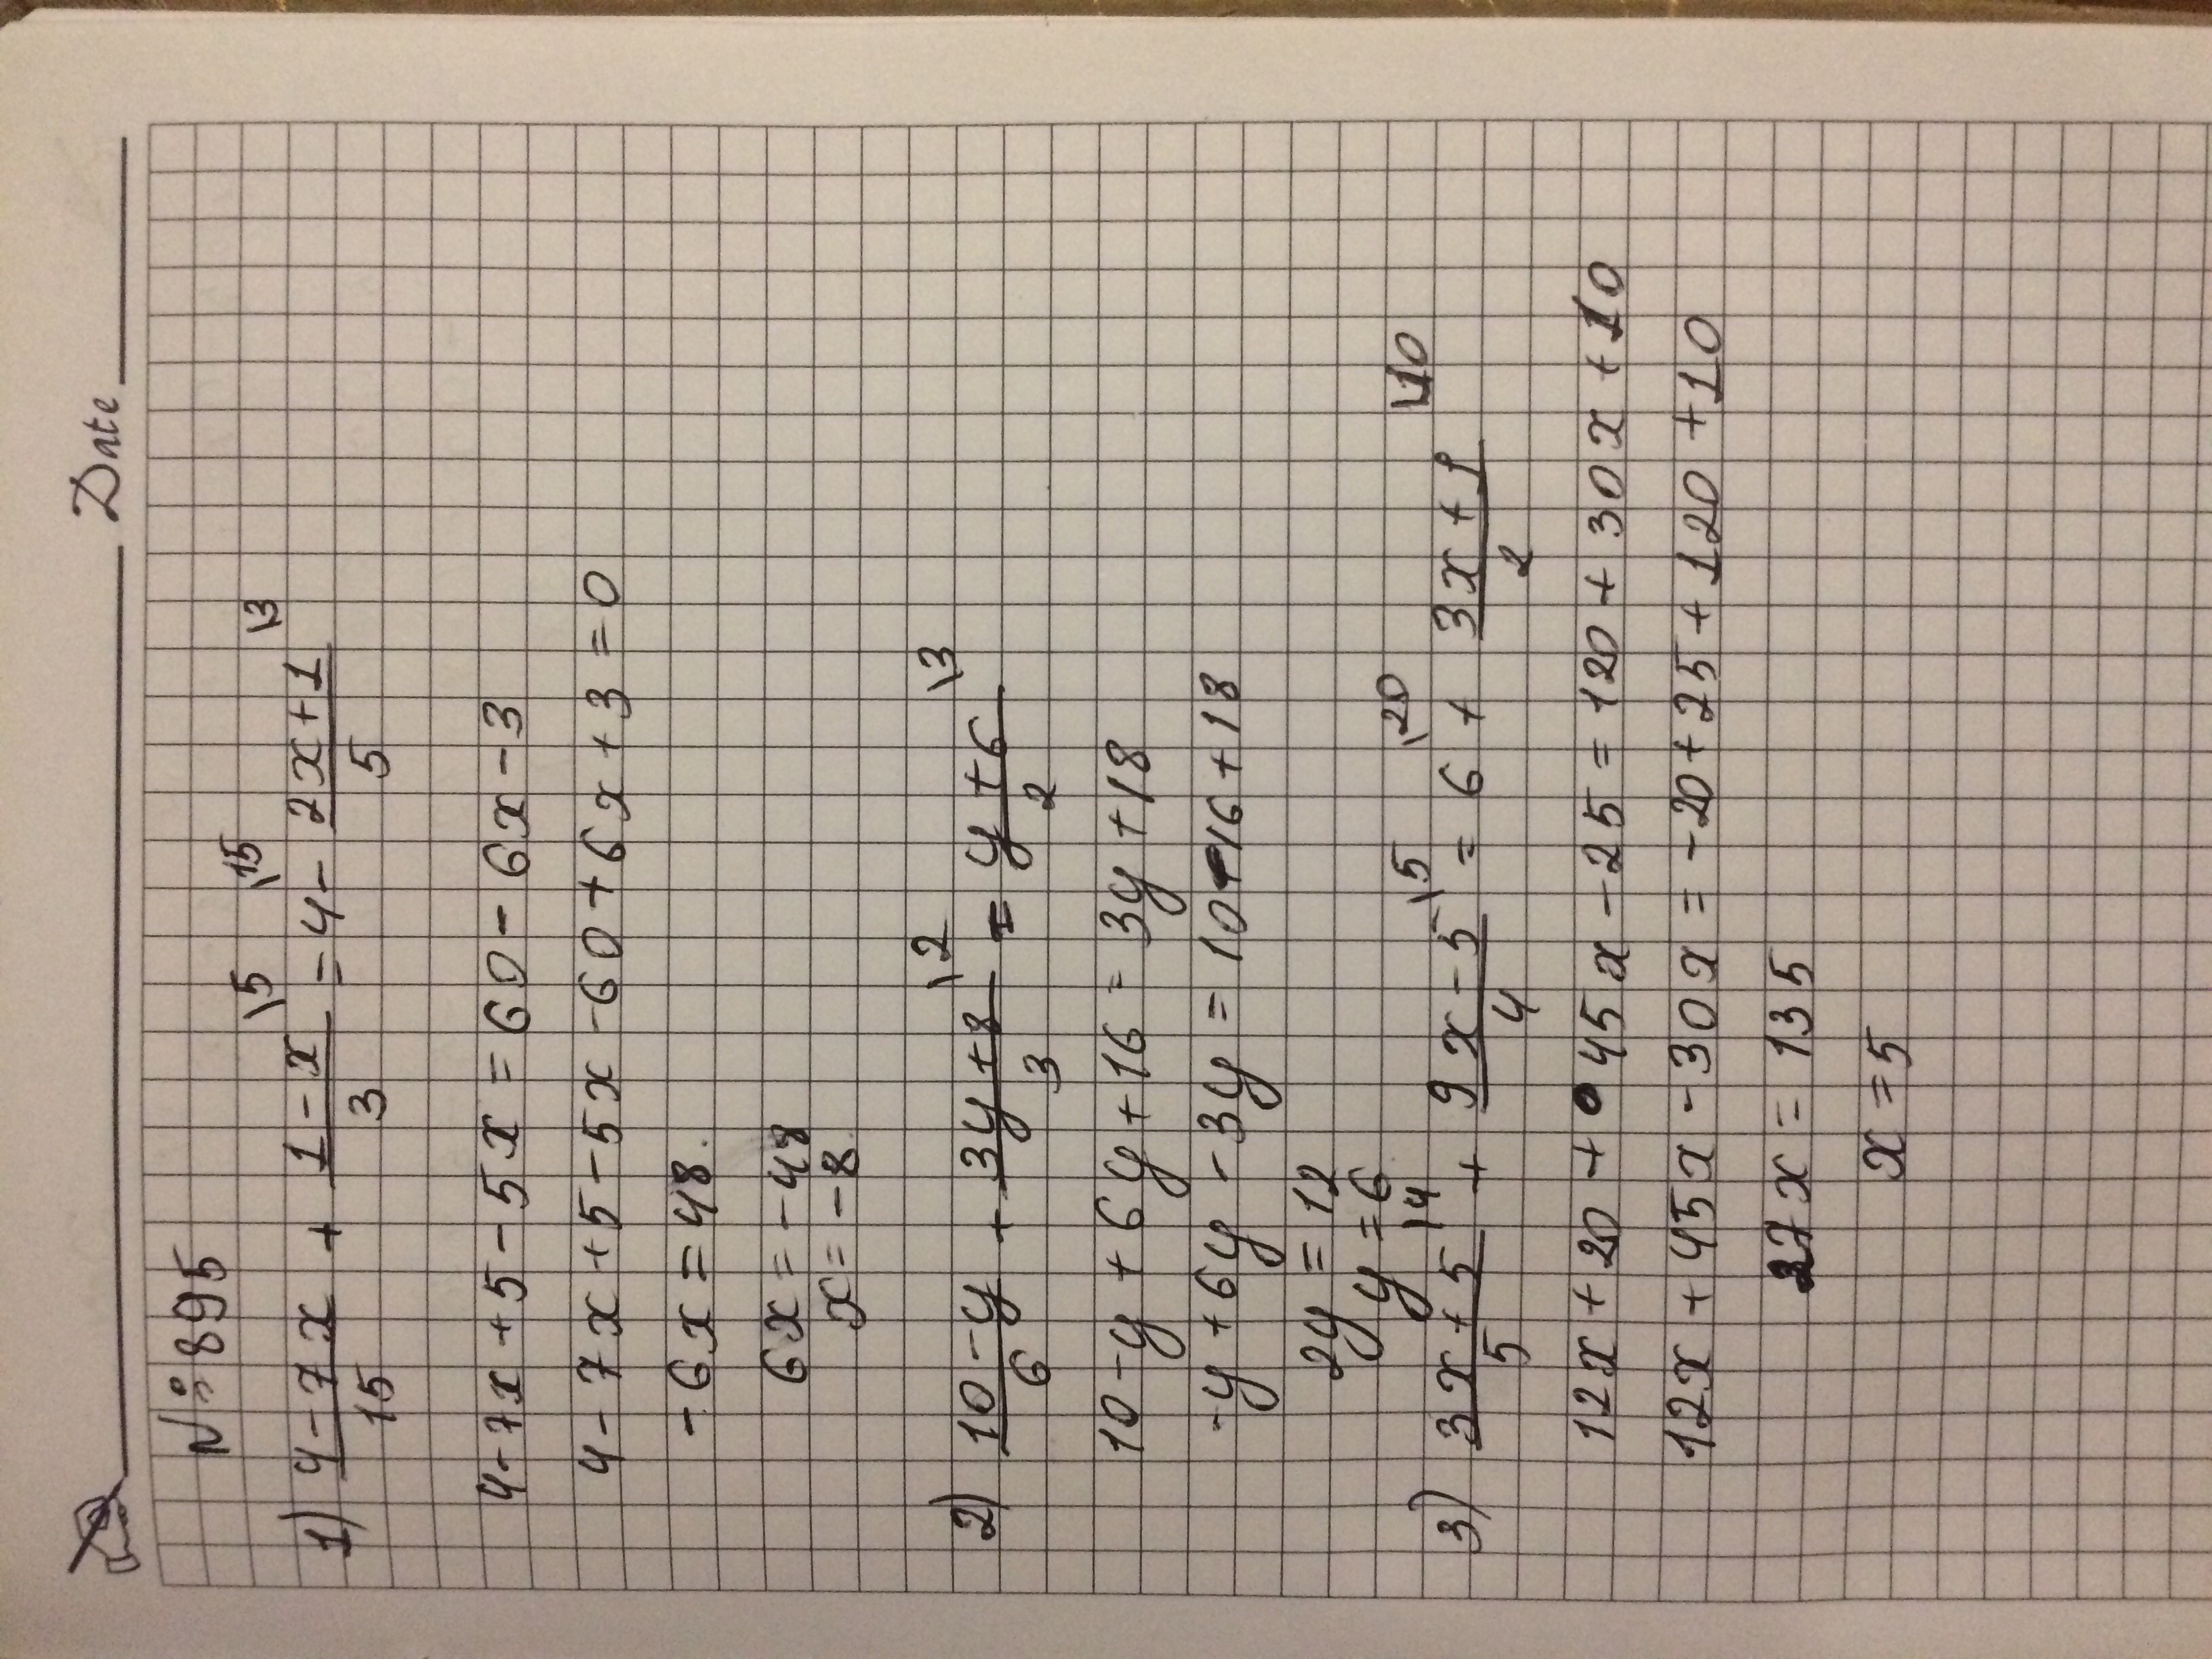 Date
№ 895
1) (4-7x)/15 + (1-x)/3 \5 = 4 \15 - (2x+1)/5 \3
4-7x+5-5x=60-6x-3
4-7x+5-5x-60+6x+3=0
-6x=48.
6x=-48
x=-8.
2) (10-y)/6 + (3y+8)/3 \2 = (y+6)/2 \3
10-y+6y+16=3y+18
-y+6y-3y=10-16+18
2y=12
y=6
3) (3x+5)/5 \4 + (9x-5)/4 \5 = 6 \20 + (3x+1)/2 \10
12x+20+45x-25=120+30x+10
12x+45x-30x=-20+25+120+10
27x=135
x=5